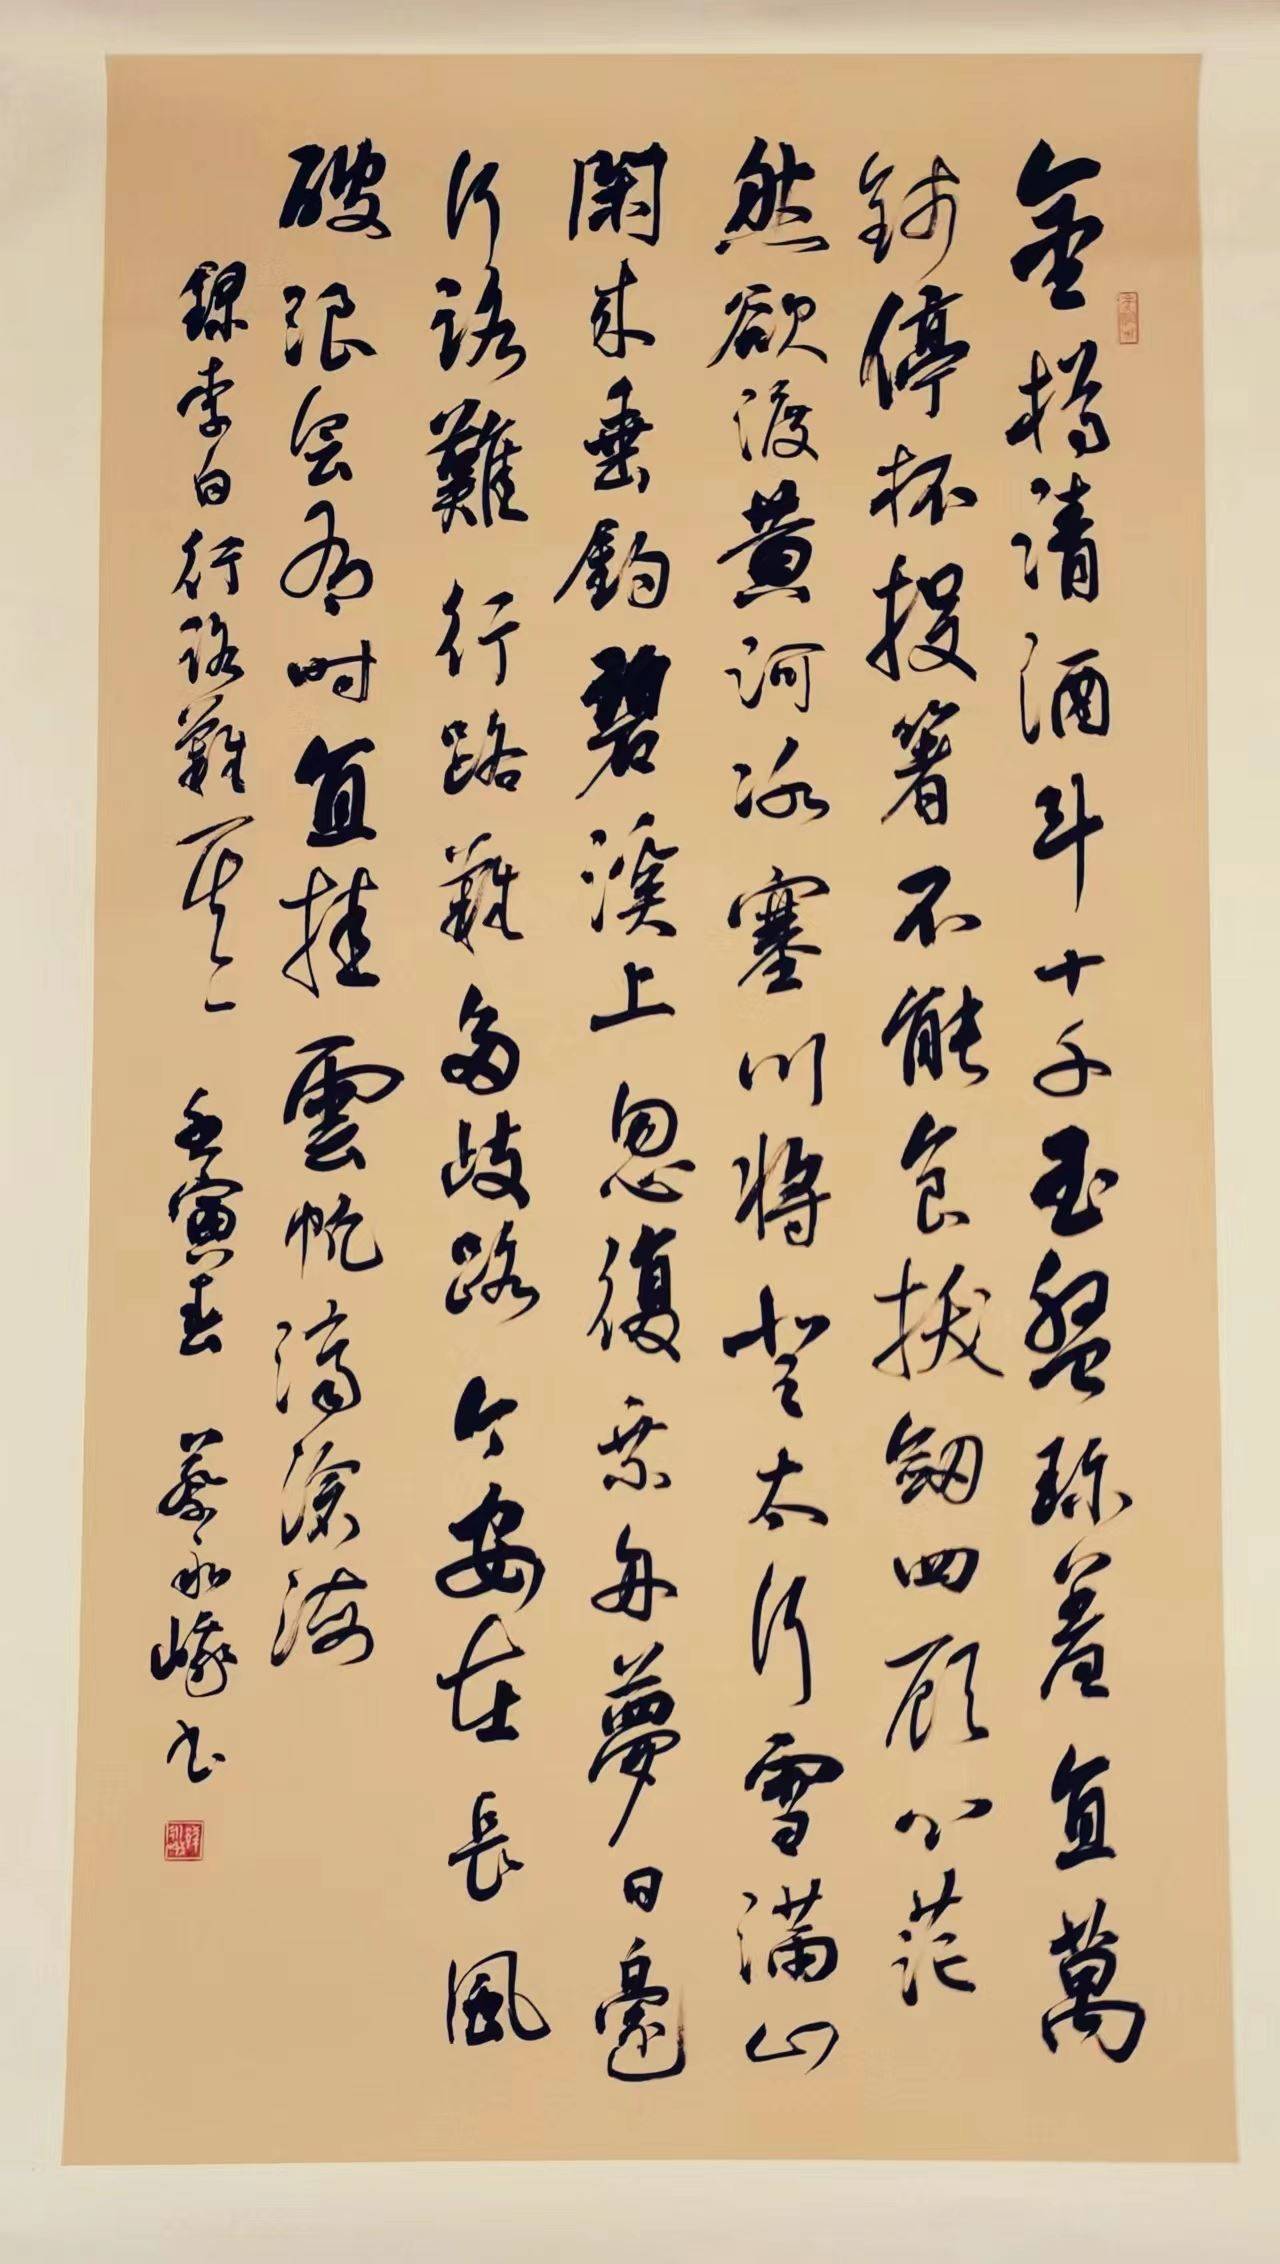 金樽清酒斗十千玉盤珎羞直萬
錢停杯投箸不能食拔劒四顧心茫
然欲渡黄河冰塞川將登太行雪滿山
閑來垂釣碧溪上忽復乘舟夢日邊
行路難行路難多歧路今安在長風
破浪會有時直挂雲帆濟滄海
錄李白行路難其一 壬寅春 蔡永峨书